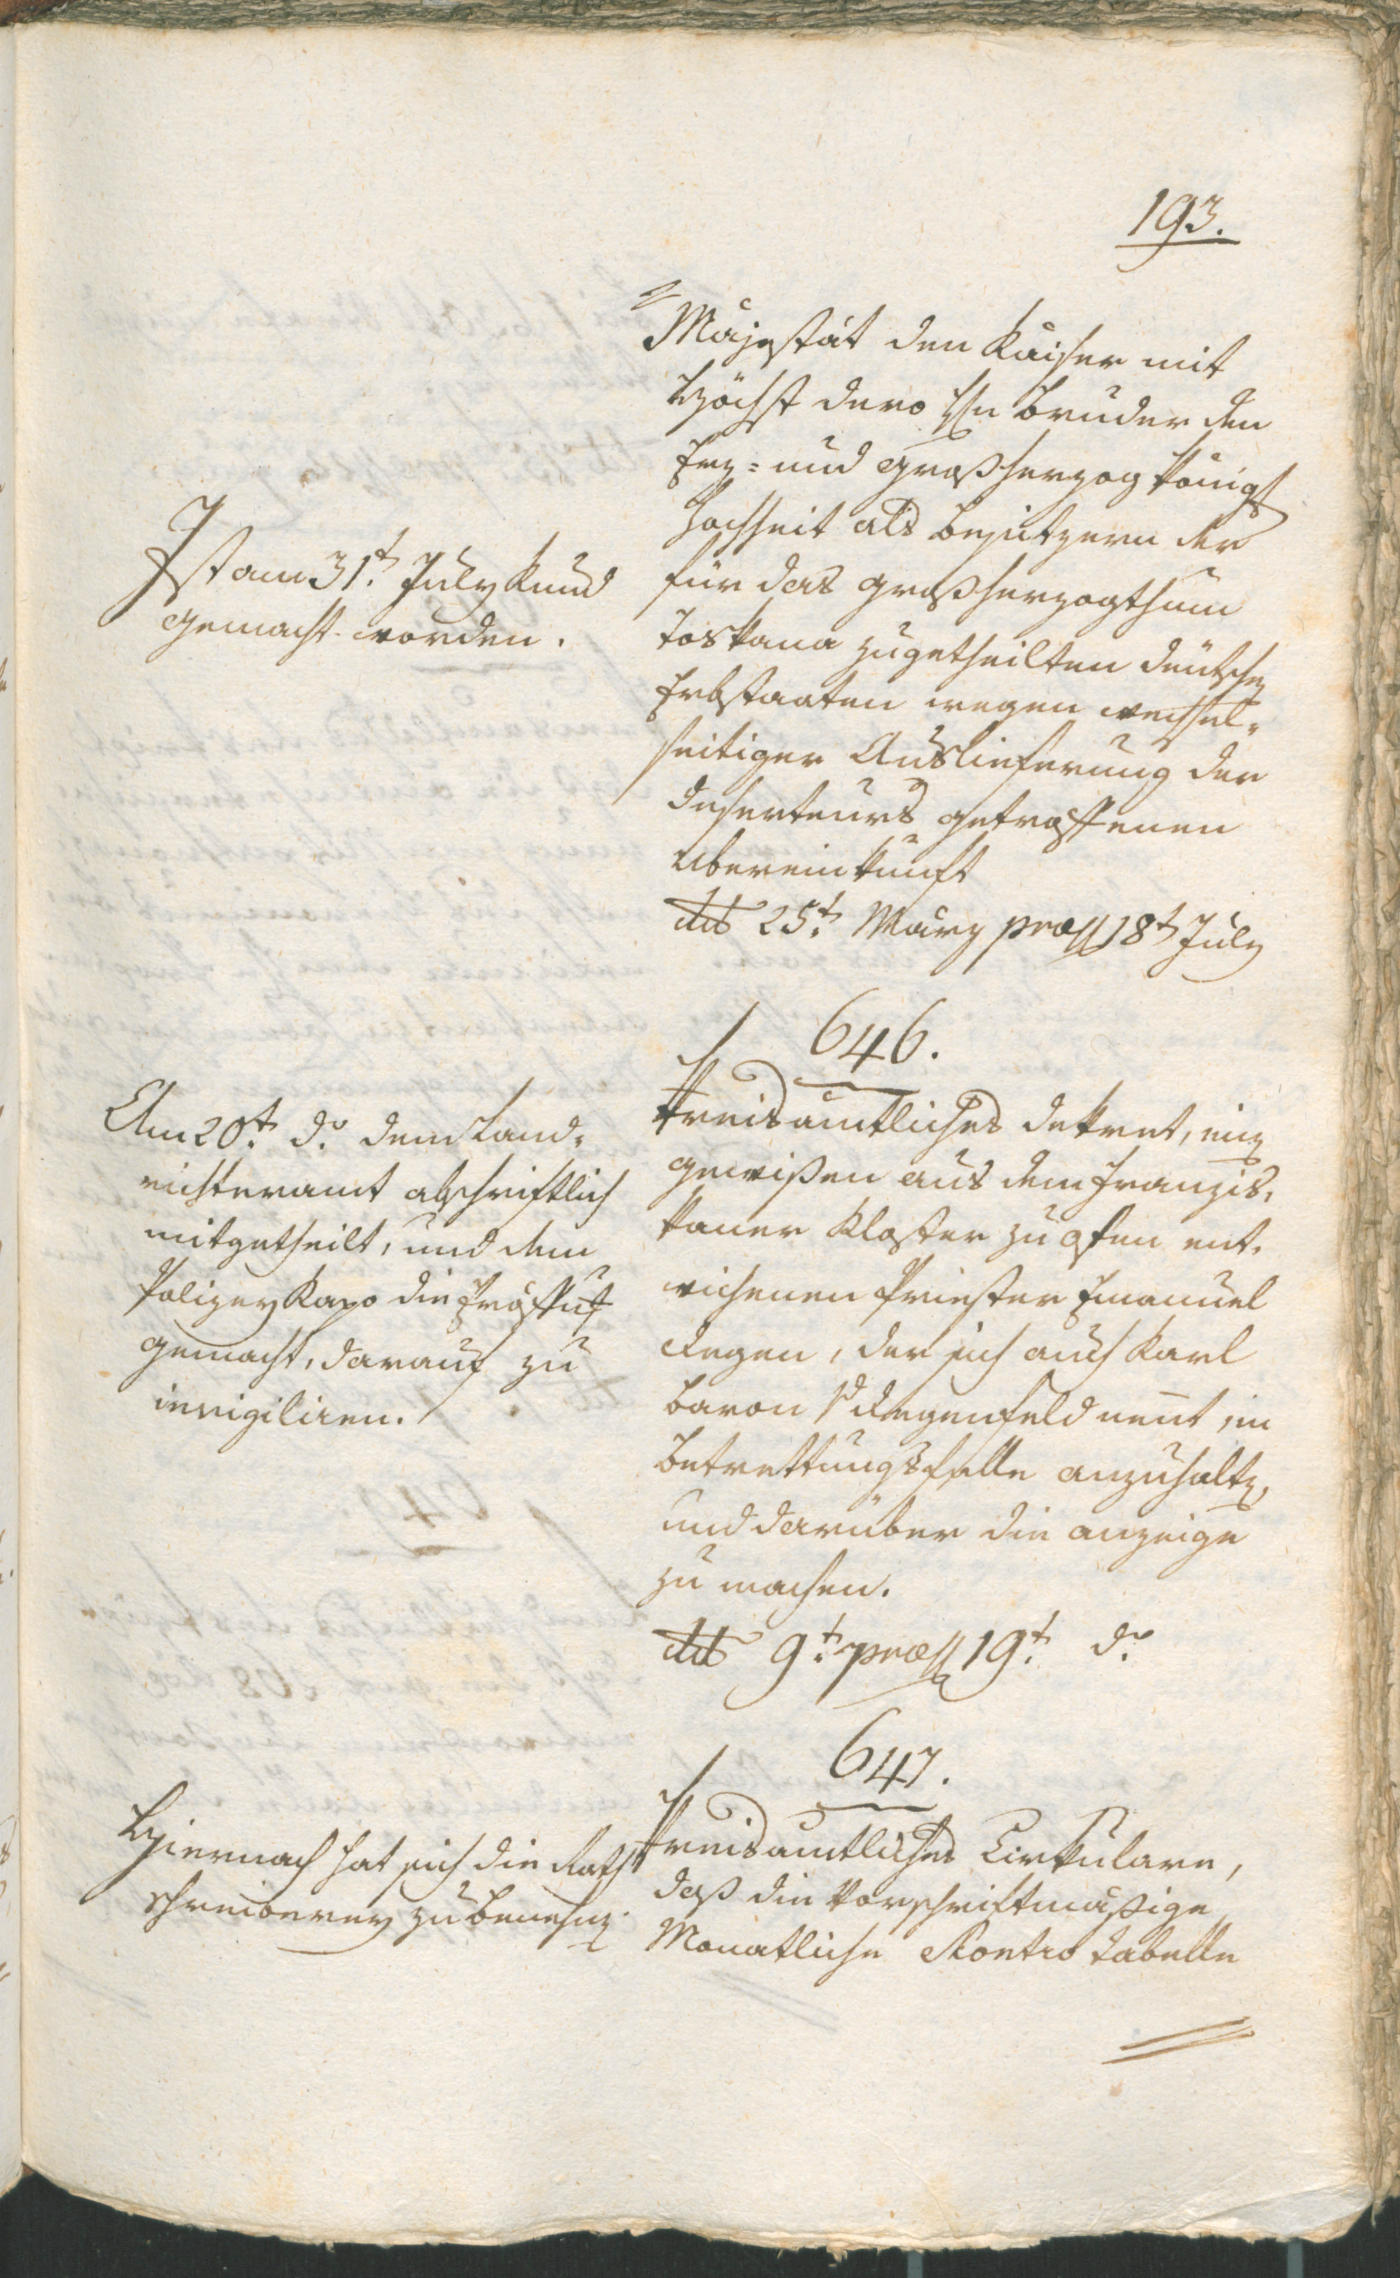 193.
Majestät den Kaiser mit
Höchst dero Hn Bruder den
Erz= und Großherzog König
Hochheit als Besitzern der
für das Großherzogthum
Toskana zugetheilten deutschen
Erbstaaten wegen wechsel-
seitiger Auslieferung der
Deserteurs getroffenen
Übereinkunft
dto 25t. März præs 18t July
Ist am 31t. July kund
gemacht worden.
646.
Kreisämtliches Dekret, einen
gewißen aus dem Franzis-
kaner Kloster zu Ofen ent-
wichenen Priester Emanuel
Regen, der sich auch Karl
Baron v Regenfeld nent, im
Betrettungsfalle anzuhalten,
und darüber die anzeige
zu machen.
dto 9t. præs 19t. do.
Am 20t. do. dem Land-
richteramt abschriftlich
mitgetheilt, und dem
Polizey Kapo die Eröffnung
gemacht, darauf zu
invigiliren.
647.
Kreisamtliches Cirkulare,
daß die Vorschriftmäßige
Monatliche Kontro tabelle
Hiernach hat sich die Rath
schreiberey zu benehmen.